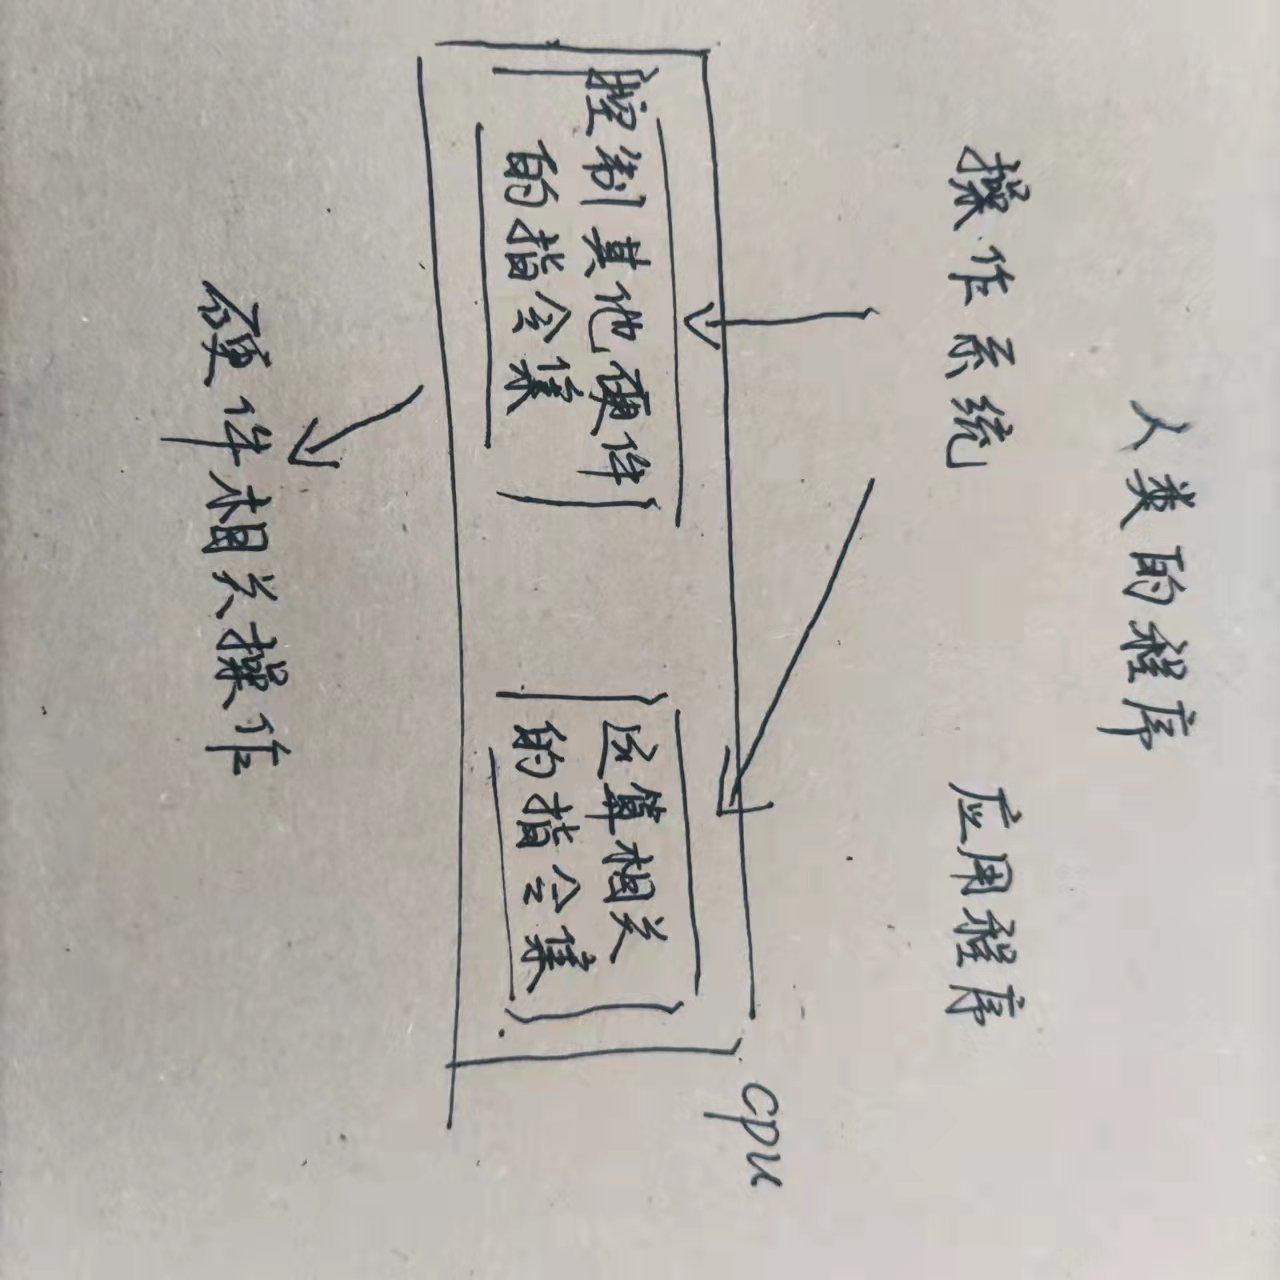 人类的程序
操作系统
应用程序
cpu
控制其他硬件
的指令集
运算相关
的指令集
硬件相关操作